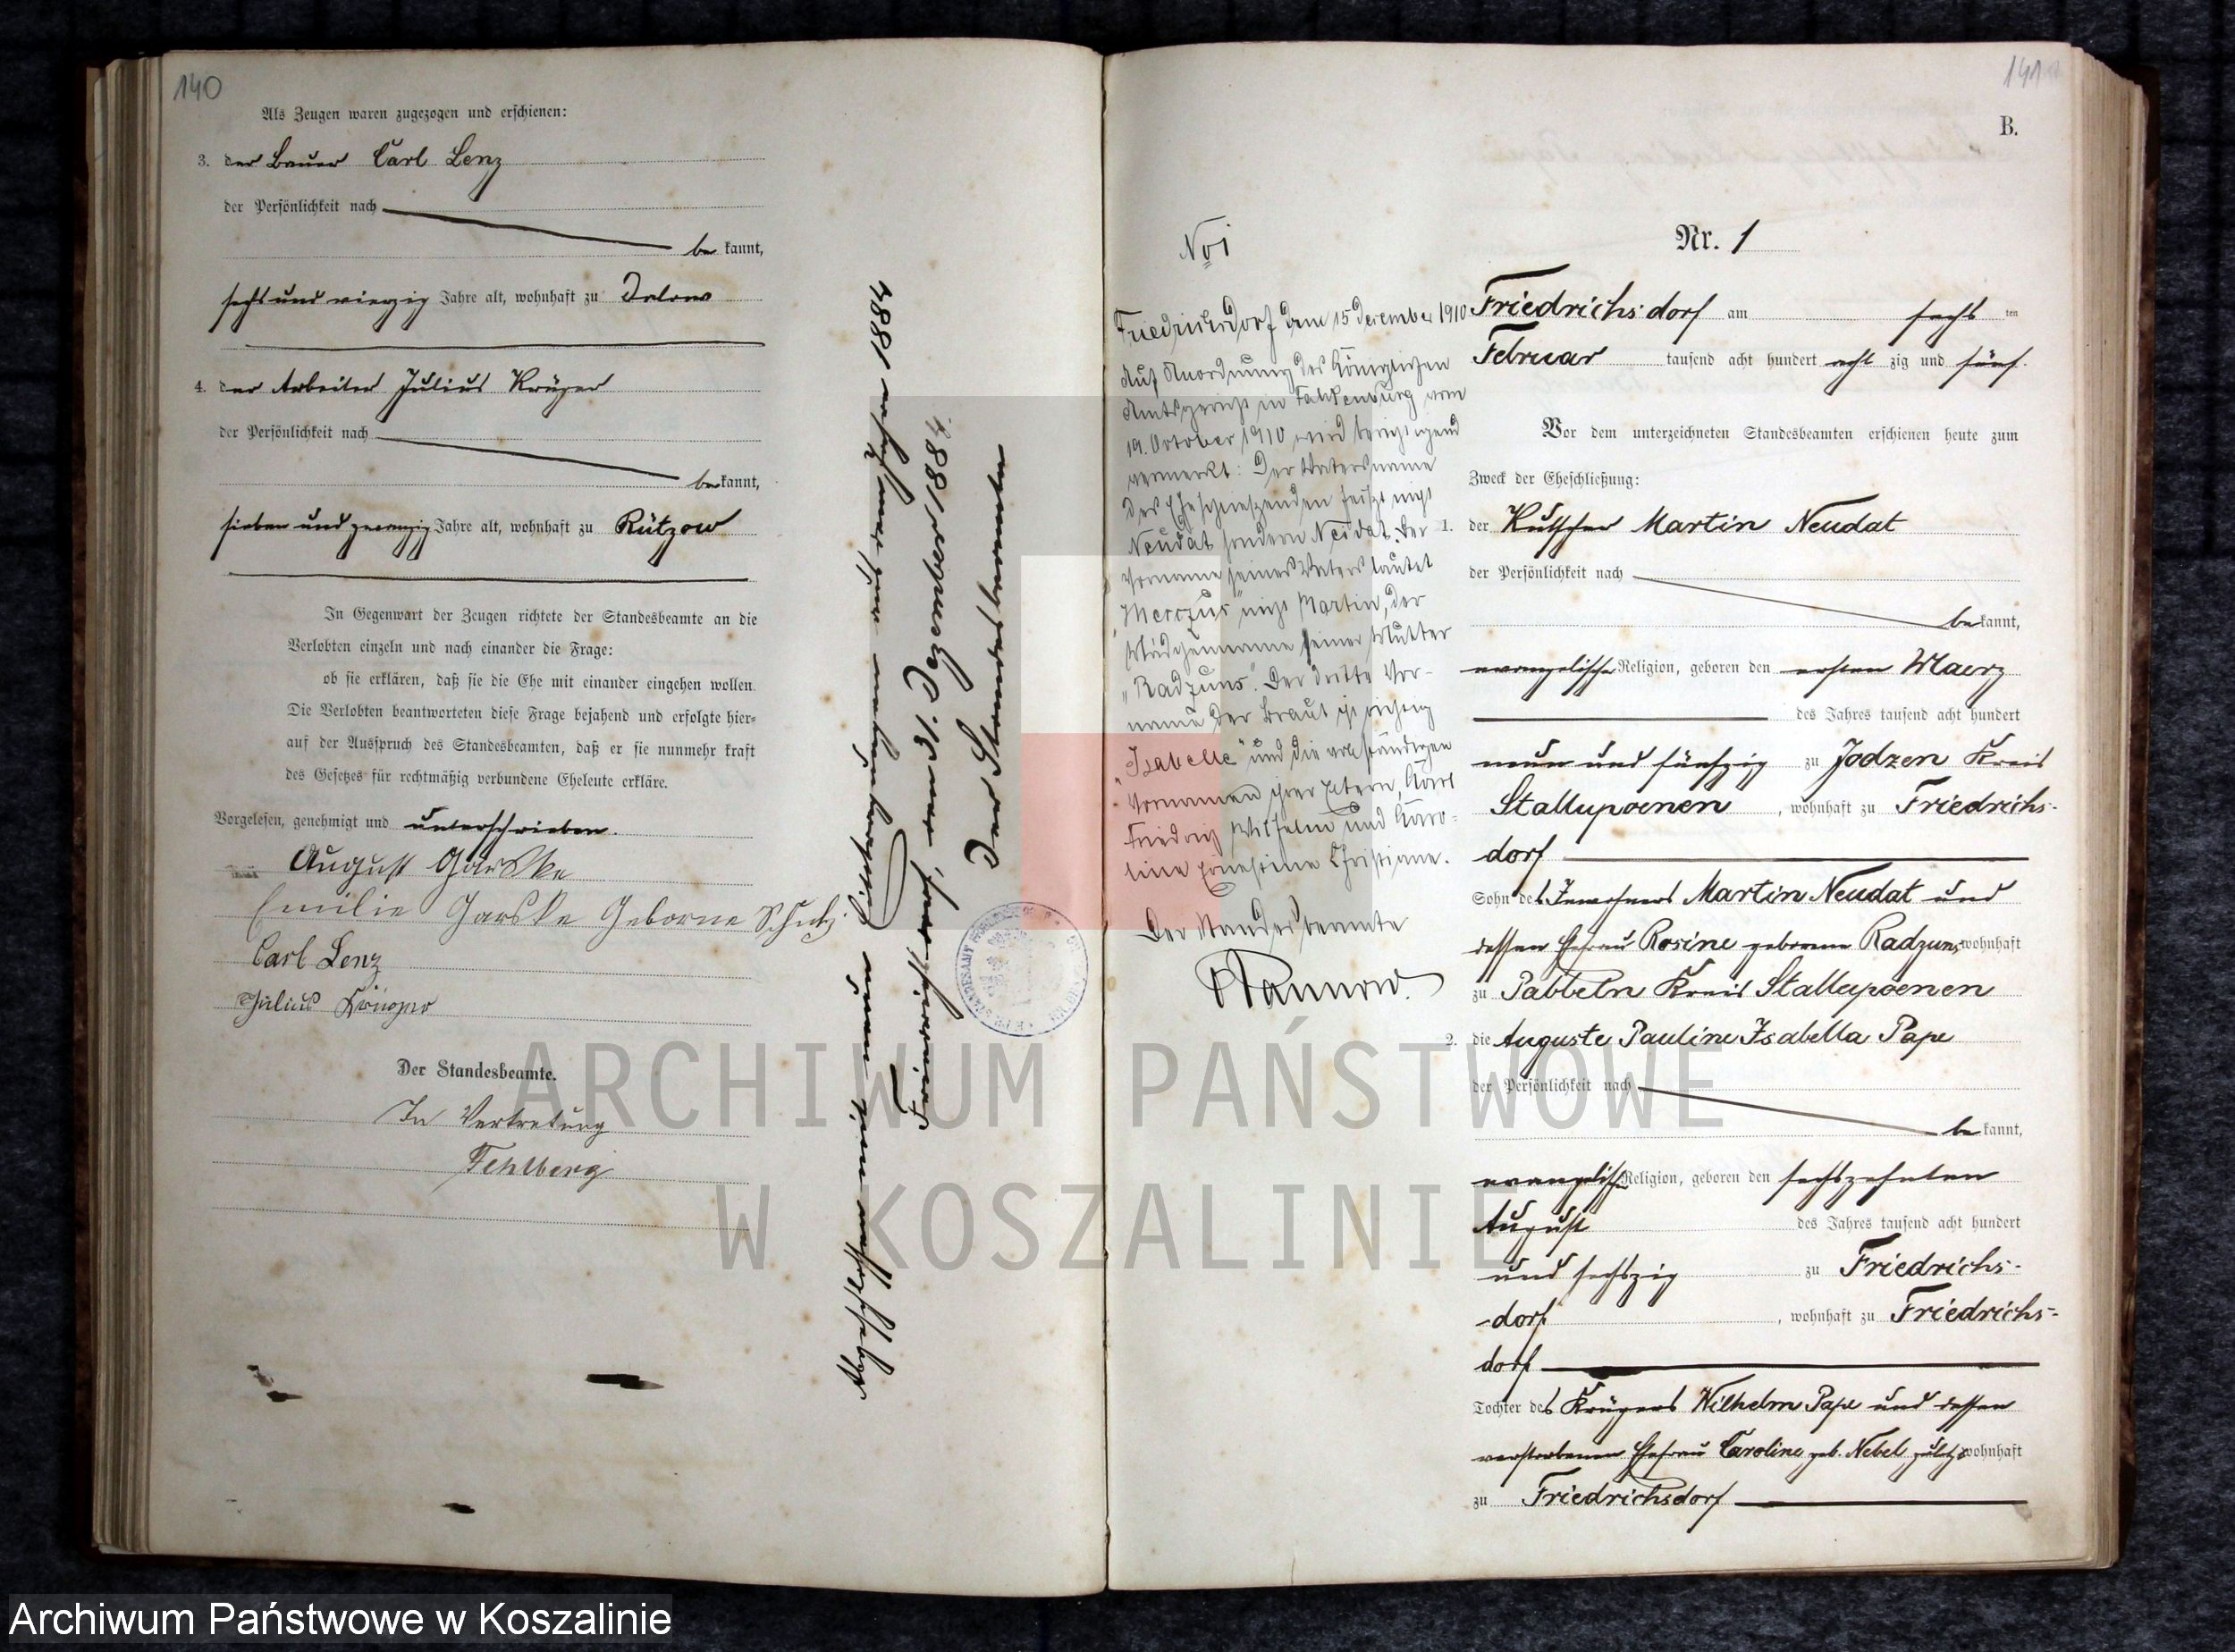 140
Als Zeugen waren zugezogen und erschienen:
3. der Bauer Carl Lenz
der Persönlichkeit nach
be kannt,
sechs und vierzig Jahre alt, wohnhaft zu Dalow
4. der Arbeiter Julius Krüger
der Persönlichkeit nach
be kannt,
sieben und zwanzig Jahre alt, wohnhaft zu Rützow
In Gegenwart der Zeugen richtete der Standesbeamte an die
Verlobten einzeln und nach einander die Frage:
ob sie erklären, daß sie die Ehe mit einander eingehen wollen.
Die Verlobten beantworteten diese Frage bejahend und erfolgte hier-
auf der Ausspruch des Standesbeamten, daß er sie nunmehr kraft
des Gesetzes für rechtmäßig verbundene Eheleute erkläre.
Vorgelesen, genehmigt und unterschrieben.
August Garske
Emilie Garske Geborne Schulz
Carl Lenz
Julius Krüger
Der Standesbeamte.
In Vertretung
Fehlberg
Abgeschlossen mit neun Eintragungen
Friedrichsdorf, den 31. Dezember 1884.
Der Standesbeamte
141
B.
No 1
Friedrichsdorf dem 15 December 1910
Auf Anordnung des Königlichen
Amtsgericht in Falkenburg vom
19. October 1910 wird berichtigend
vermerkt: Der Vatersname
des Eheschließenden heißt nicht
Neudat sondern Neidat. Der
Vorname seines Vaters lautet
"Merczus" nicht Martin, der
Mädchenname seiner Mutter
"Radzuns". Der dritte Vor-
name der Braut ist richtig
"Isabelle" und die vollständigen
Vornamen ihrer Eltern, Carl
Friedrich Wilhelm und Karo-
line Ernestine Christiane.
Der Standesbeamte
Nr. 1
Friedrichsdorf am sechs ten
Februar tausend acht hundert acht zig und fünf.
Vor dem unterzeichneten Standesbeamten erschienen heute zum
Zweck der Eheschließung:
1. der Kutscher Martin Neudat
der Persönlichkeit nach
be kannt,
evangelischer Religion, geboren den ersten Maerz
des Jahres tausend acht hundert
neun und fünfzig zu Jodzen Kreis
Stallupoenen, wohnhaft zu Friedrichs-
dorf
Sohn des Einwohners Martin Neudat und
dessen Ehefrau Rosine geborene Radzuns wohnhaft
zu Pabbeln Kreis Stallupoenen
2. die Auguste Pauline Isabella Pape
der Persönlichkeit nach
be kannt,
evangelischer Religion, geboren den sechszehnten
August des Jahres tausend acht hundert
und sechszig zu Friedrichs-
-dorf, wohnhaft zu Friedrichs-
dorf
Tochter des Krügers Wilhelm Pape und dessen
verstorbenen Ehefrau Caroline geb. Nebel zuletzt wohnhaft
zu Friedrichsdorf
ARCHIWUM PAŃSTWOWE
W KOSZALINIE
Archiwum Państwowe w Koszalinie